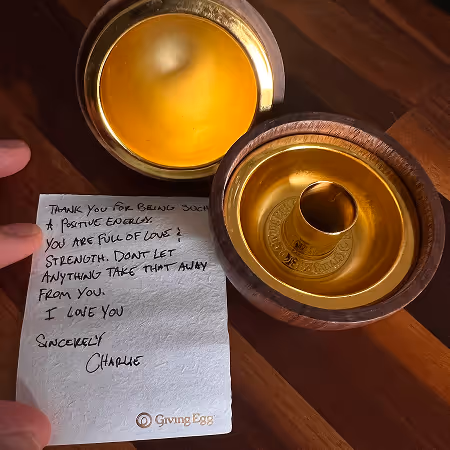 THANK YOU FOR BEING SUCH
A POSITIVE ENERGY.
YOU ARE FULL OF LOVE &
STRENGTH. DONT LET
ANYTHING TAKE THAT AWAY
FROM YOU.
I LOVE YOU
SINCERELY
CHARLIE
Giving Egg